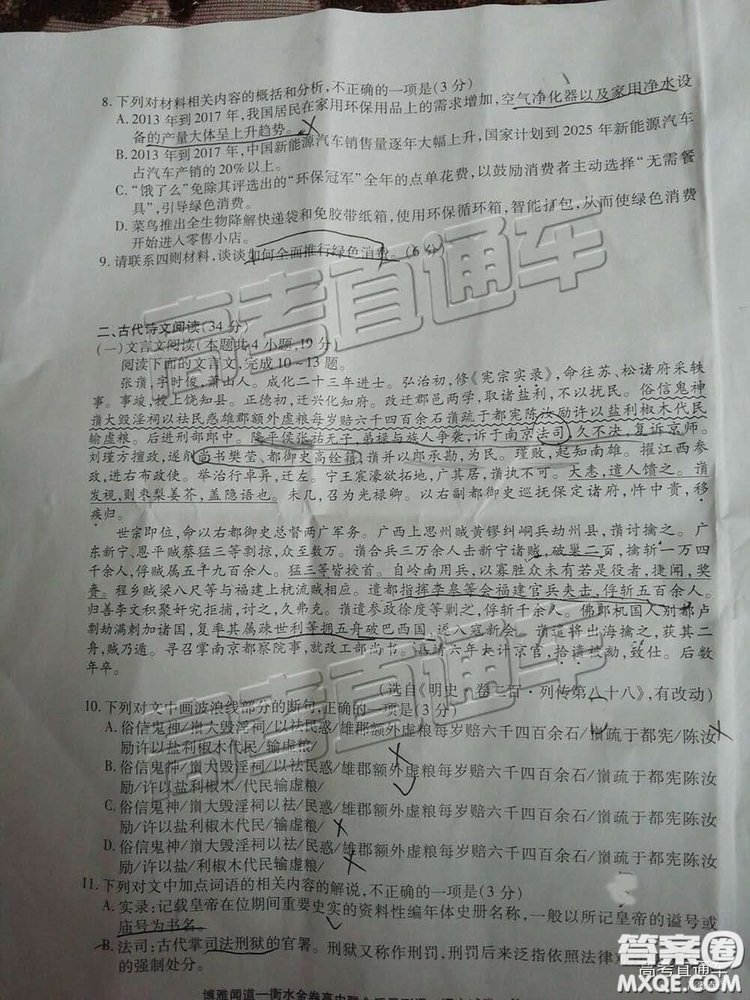 8. 下列对材料相关内容的概括和分析,不正确的一项是(3分)
A. 2013年到2017年,我国居民在家用环保用品上的需求增加,空气净化器以及家用净水设
备的产量大体呈上升趋势。
B. 2013年到2017年,中国新能源汽车销售量逐年大幅上升,国家计划到2025年新能源汽车
占汽车产销的20%以上。
C. “饿了么”免除其评选出的“环保冠军”全年的点单花费,以鼓励消费者主动选择“无需餐
具”,引导绿色消费。
D. 菜鸟推出全生物降解快递袋和免胶带纸箱,使用环保循环箱,智能打包,从而使绿色消费
开始进入零售小店。
9. 请联系四则材料,谈谈如何全面推行绿色消费。(6分)
二、古代诗文阅读(34分)
(一)文言文阅读(本题共4小题,19分)
阅读下面的文言文,完成10~13题。
张嵿,字时俊,萧山人。成化二十三年进士。弘治初,修《宪宗实录》,命往苏、松诸府采轶
事。事竣,授上饶知县。正德初,迁兴化知府。改迁郡邑两学,取诸盐利,不以扰民。俗信鬼神
嵿大毁淫祠以祛民惑雄郡额外虚粮每岁赔六千四百余石嵿疏于都宪陈汝励许以盐利椒木代民
输虚粮。后进刑部郎中。隆平侯张祐无子,弟禄与族人争袭,诉于南京法司,久不决,复诉京师。
刘瑾方擅政,遂削尚书樊莹、都御史高铨籍,嵿并以郎承勘,为民。瑾败,起知南雄。擢江西参
政,进右布政使。举治行卓异,迁左。宁王宸濠欲拓地,广其居,嵿执不可。大恚,遣人馈之。嵿
发视,则枣梨姜芥,盖隐语也。未几,召为光禄卿。以右副都御史巡抚保定诸府,忤中贵,移
疾归。
世宗即位,命以右都御史总督两广军务。广西上思州贼黄镠纠峒兵劫州县,嵿讨擒之。广
东新宁、恩平贼蔡猛三等剽掠,众至数万。嵿合兵三万余人击新宁诸贼,破巢二百,擒斩一万四
千余人,俘贼属五千九百余人。猛三等皆授首。自岭南用兵,以寡胜众未有若是役者,捷闻,奖
赉。程乡贼梁八尺等与福建上杭流贼相应。遣都指挥李皋等会福建官兵夹击,俘斩五百余人。
归善李文积聚奸宄拒捕,讨之,久弗克。嵿遣参政徐度等剿之,俘斩千余人。佛郎机国人别都卢
剽劫满剌加诸国,复率其属疎世利等拥五舟破巴西国,遂入寇新会。嵿遣将出海擒之,获其二
舟,贼乃遁。寻召掌南京都察院事,就改工部尚书。嘉靖六年大计京官,拾遗被劾,致仕。后数
年卒。
(选自《明史》卷二百·列传第八十八》,有改动)
10. 下列对文中画波浪线部分的断句,正确的一项是(3分)
A. 俗信鬼神/嵿大毁淫祠/以祛民惑/雄郡额外虚粮每岁赔六千四百余石/嵿疏于都宪/陈汝
励/许以盐利椒木代民/输虚粮/
B. 俗信鬼神/嵿大毁淫祠/以祛民惑/雄郡额外虚粮每岁赔六千四百余石/嵿疏于都宪陈汝
励/许以盐利椒木/代民输虚粮/
C. 俗信鬼神/嵿大毁淫祠/以祛民惑/雄郡额外虚粮每岁赔六千四百余石/嵿疏于都宪陈汝
励/许以盐利椒木代民/输虚粮/
D. 俗信鬼神/嵿大毁淫祠/以祛民惑/雄郡额外虚粮每岁赔六千四百余石/嵿疏于都宪/陈汝
励/许以盐/利椒木代民输虚粮/
11. 下列对文中加点词语的相关内容的解说,不正确的一项是(3分)
A. 实录:记载皇帝在位期间重要史实的资料性编年体史册名称,一般以所记皇帝的谥号或
庙号为书名。
B. 法司:古代掌司法刑狱的官署。刑狱又称作刑罚,刑罚后来泛指依照法律
的强制处分。
高考直通车
高考直通车
答案圈
MXQE.COM
高考直通车